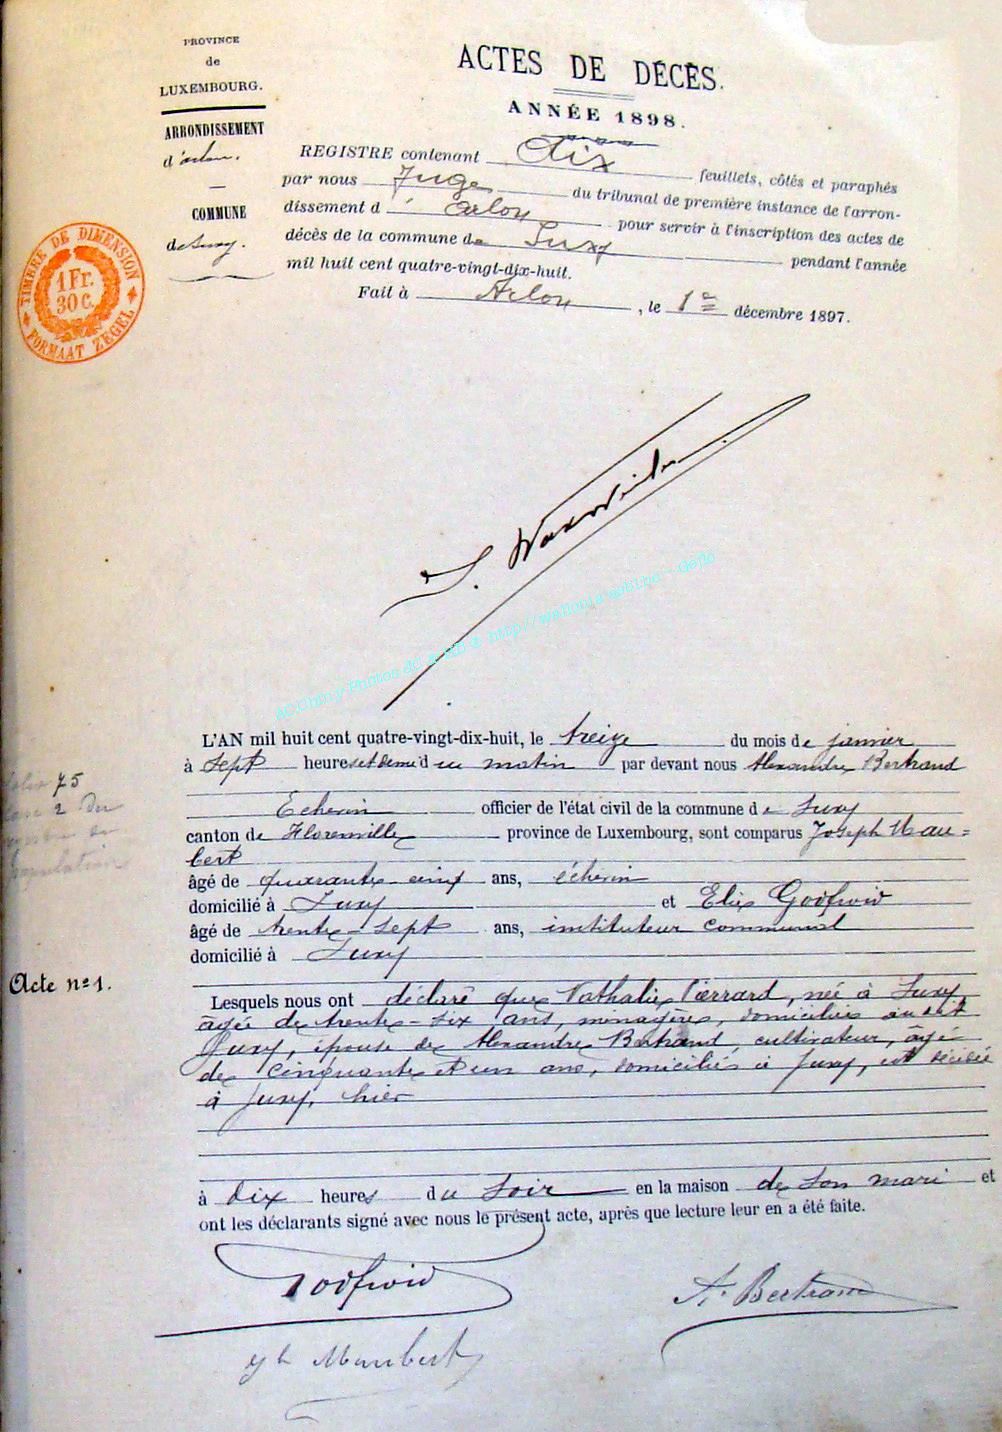 PROVINCE
de
LUXEMBOURG.
ARRONDISSEMENT
d'arlon.
COMMUNE
de Suxy.
TIMBRE DE DIMENSION
1 Fr.
30 C.
FORMAAT ZEGEL
ACTES DE DÉCÈS.
ANNÉE 1898.
REGISTRE contenant dix feuillets, côtés et paraphés
par nous Juge du tribunal de première instance de l'arron-
dissement d' Arlon pour servir à l'inscription des actes de
décès de la commune de Suxy pendant l'année
mil huit cent quatre-vingt-dix-huit.
Fait à Arlon, le 1er décembre 1897.
AC Chiny Photos http://wallonia.gebl.be - Geflo
L'AN mil huit cent quatre-vingt-dix-huit, le treize du mois de janvier
à Sept heures et demi du matin par devant nous Alexandre Bertrand
Echevin officier de l'état civil de la commune de Suxy
canton de Florenville province de Luxembourg, sont comparus Joseph Mau=
bert
âgé de quarante cinq ans, échevin
domicilié à Suxy et Elie Godfroid
âgé de trente-sept ans, instituteur communal
domicilié à Suxy
Acte n° 1.
Lesquels nous ont déclaré que Nathalie Pierrard, née à Suxy
âgée de trente-six ans, ménagère, domiciliée au dit
Suxy, épouse de Alexandre Bertrand, cultivateur, âgé
de cinquante et un ans, domicilié à Suxy, est décédée
à Suxy, hier
à dix heures du soir en la maison de son mari et
ont les déclarants signé avec nous le présent acte, après que lecture leur en a été faite.
Godfroid
A. Bertrand
Jh Maubert